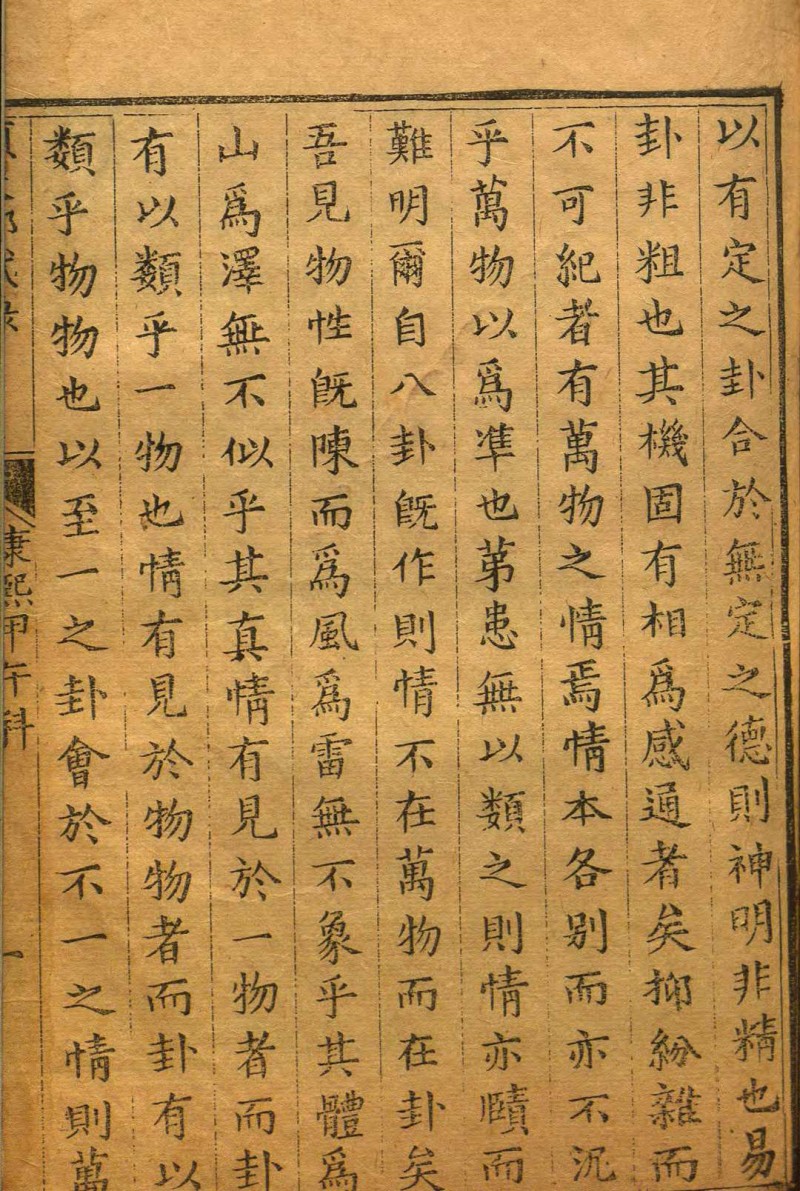 以有定之卦合於無定之德則神明非精也易
卦非粗也其機固有相為感通者矣抑紛雜而
不可紀者有萬物之情焉情本各别而亦不沉
乎萬物以爲準也苐患無以類之則情亦賾而
難明爾自八卦旣作則情不在萬物而在卦矣
吾見物性旣陳而爲風爲雷無不象乎其體爲
山爲澤無不似乎其真情有見於一物者而卦
有以類乎一物也情有見於物物者而卦有以
類乎物物也以至一之卦會於不一之情則萬
康熙甲午科
一